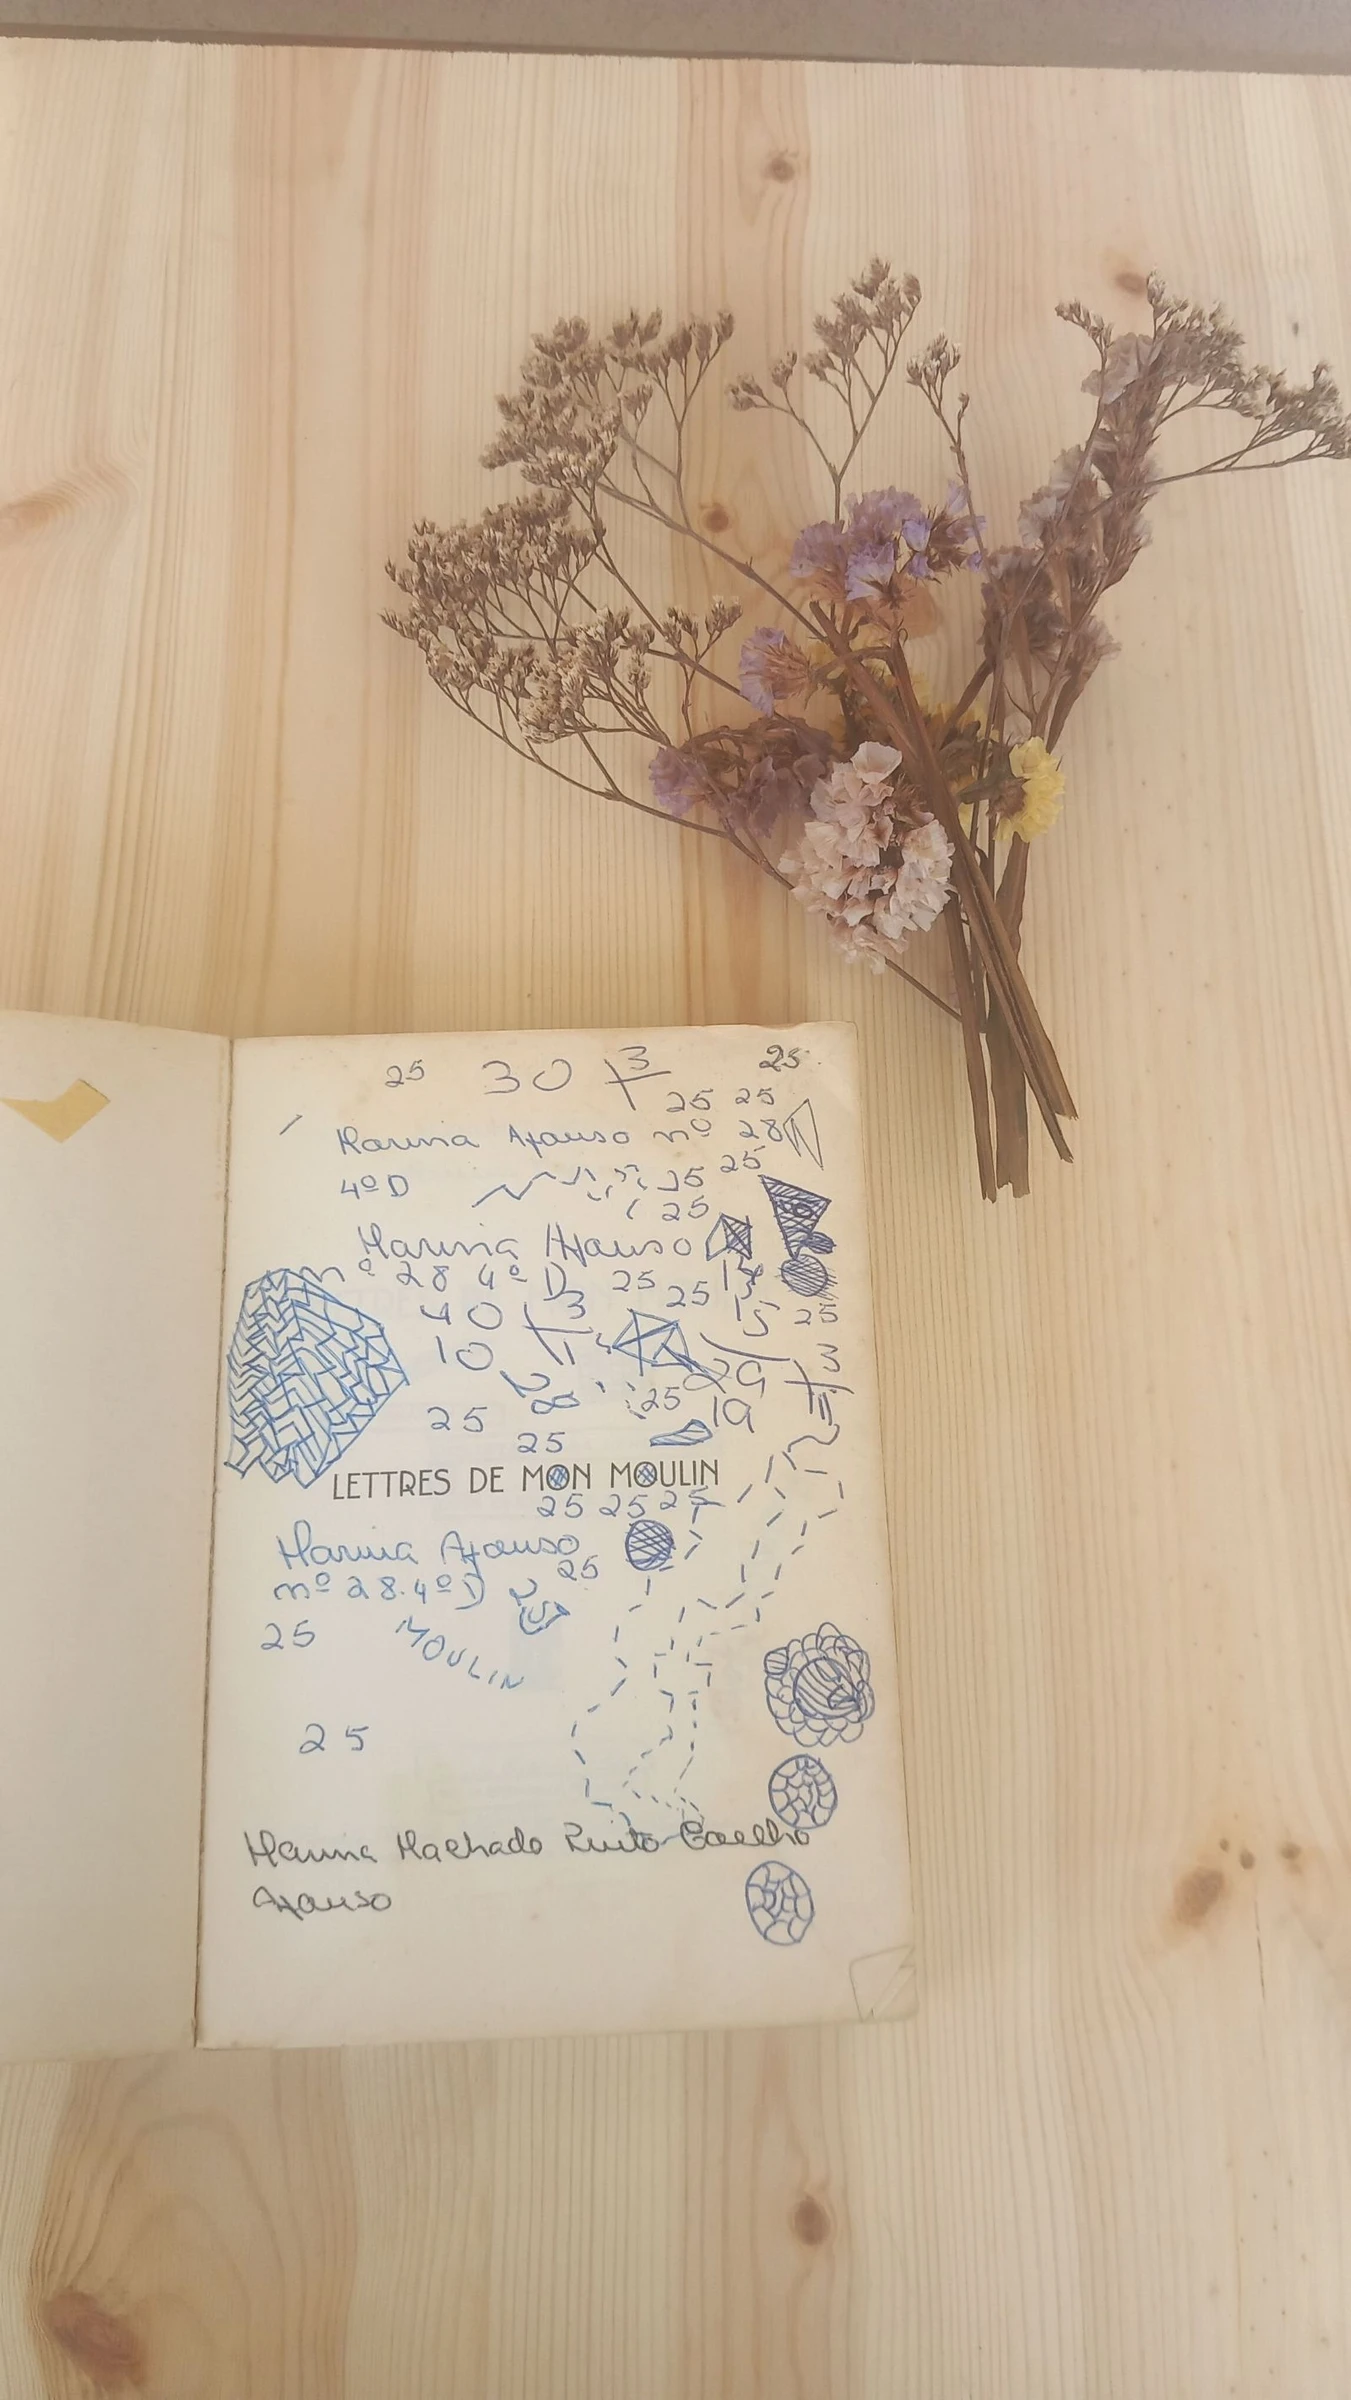 25 30 3 25
25 25
Marina Afonso nº 28
4º D 25 25
25
Marina Afonso
nº 28 4º D 25 25
40 3 25
10 29 3
25 19
25 28
25
LETTRES DE MON MOULIN
25 25 25
Marina Afonso
25
nº 28.4º D
25 MOULIN
25
Marina Machado Coelho
Afonso